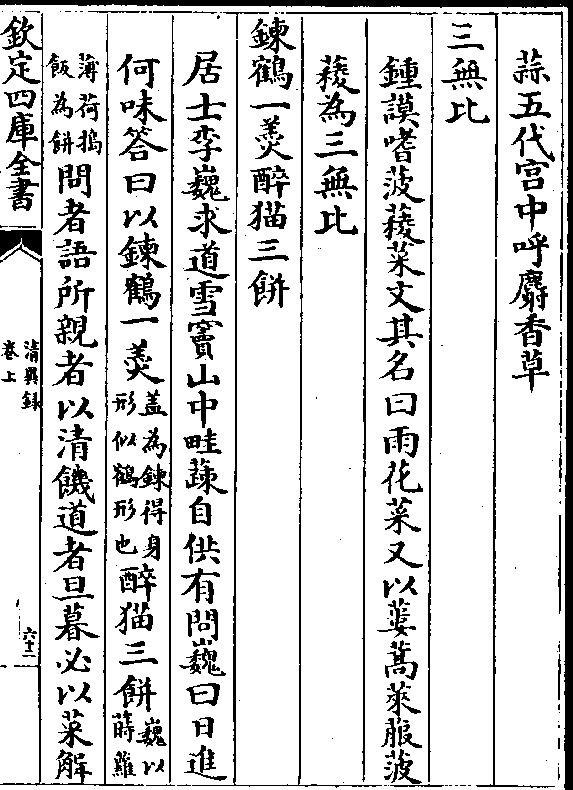 蒜五代宫中呼麝香草
三無比
鍾謨嗜菠薐菜文其名曰雨花菜又以蔞蒿萊菔菠
薐為三無比
鍊鶴一羮醉猫三餅
居士李巍求道雪竇山中畦蔬自供有問巍曰日進
何味答曰以鍊鶴一羮盖為鍊得身形似鶴形也醉猫三餅巍以蒔蘿
薄荷搗飯為餅問者語所親者以清饑道者旦暮必以菜解
欽定四庫全書
清異録
卷上
六十二